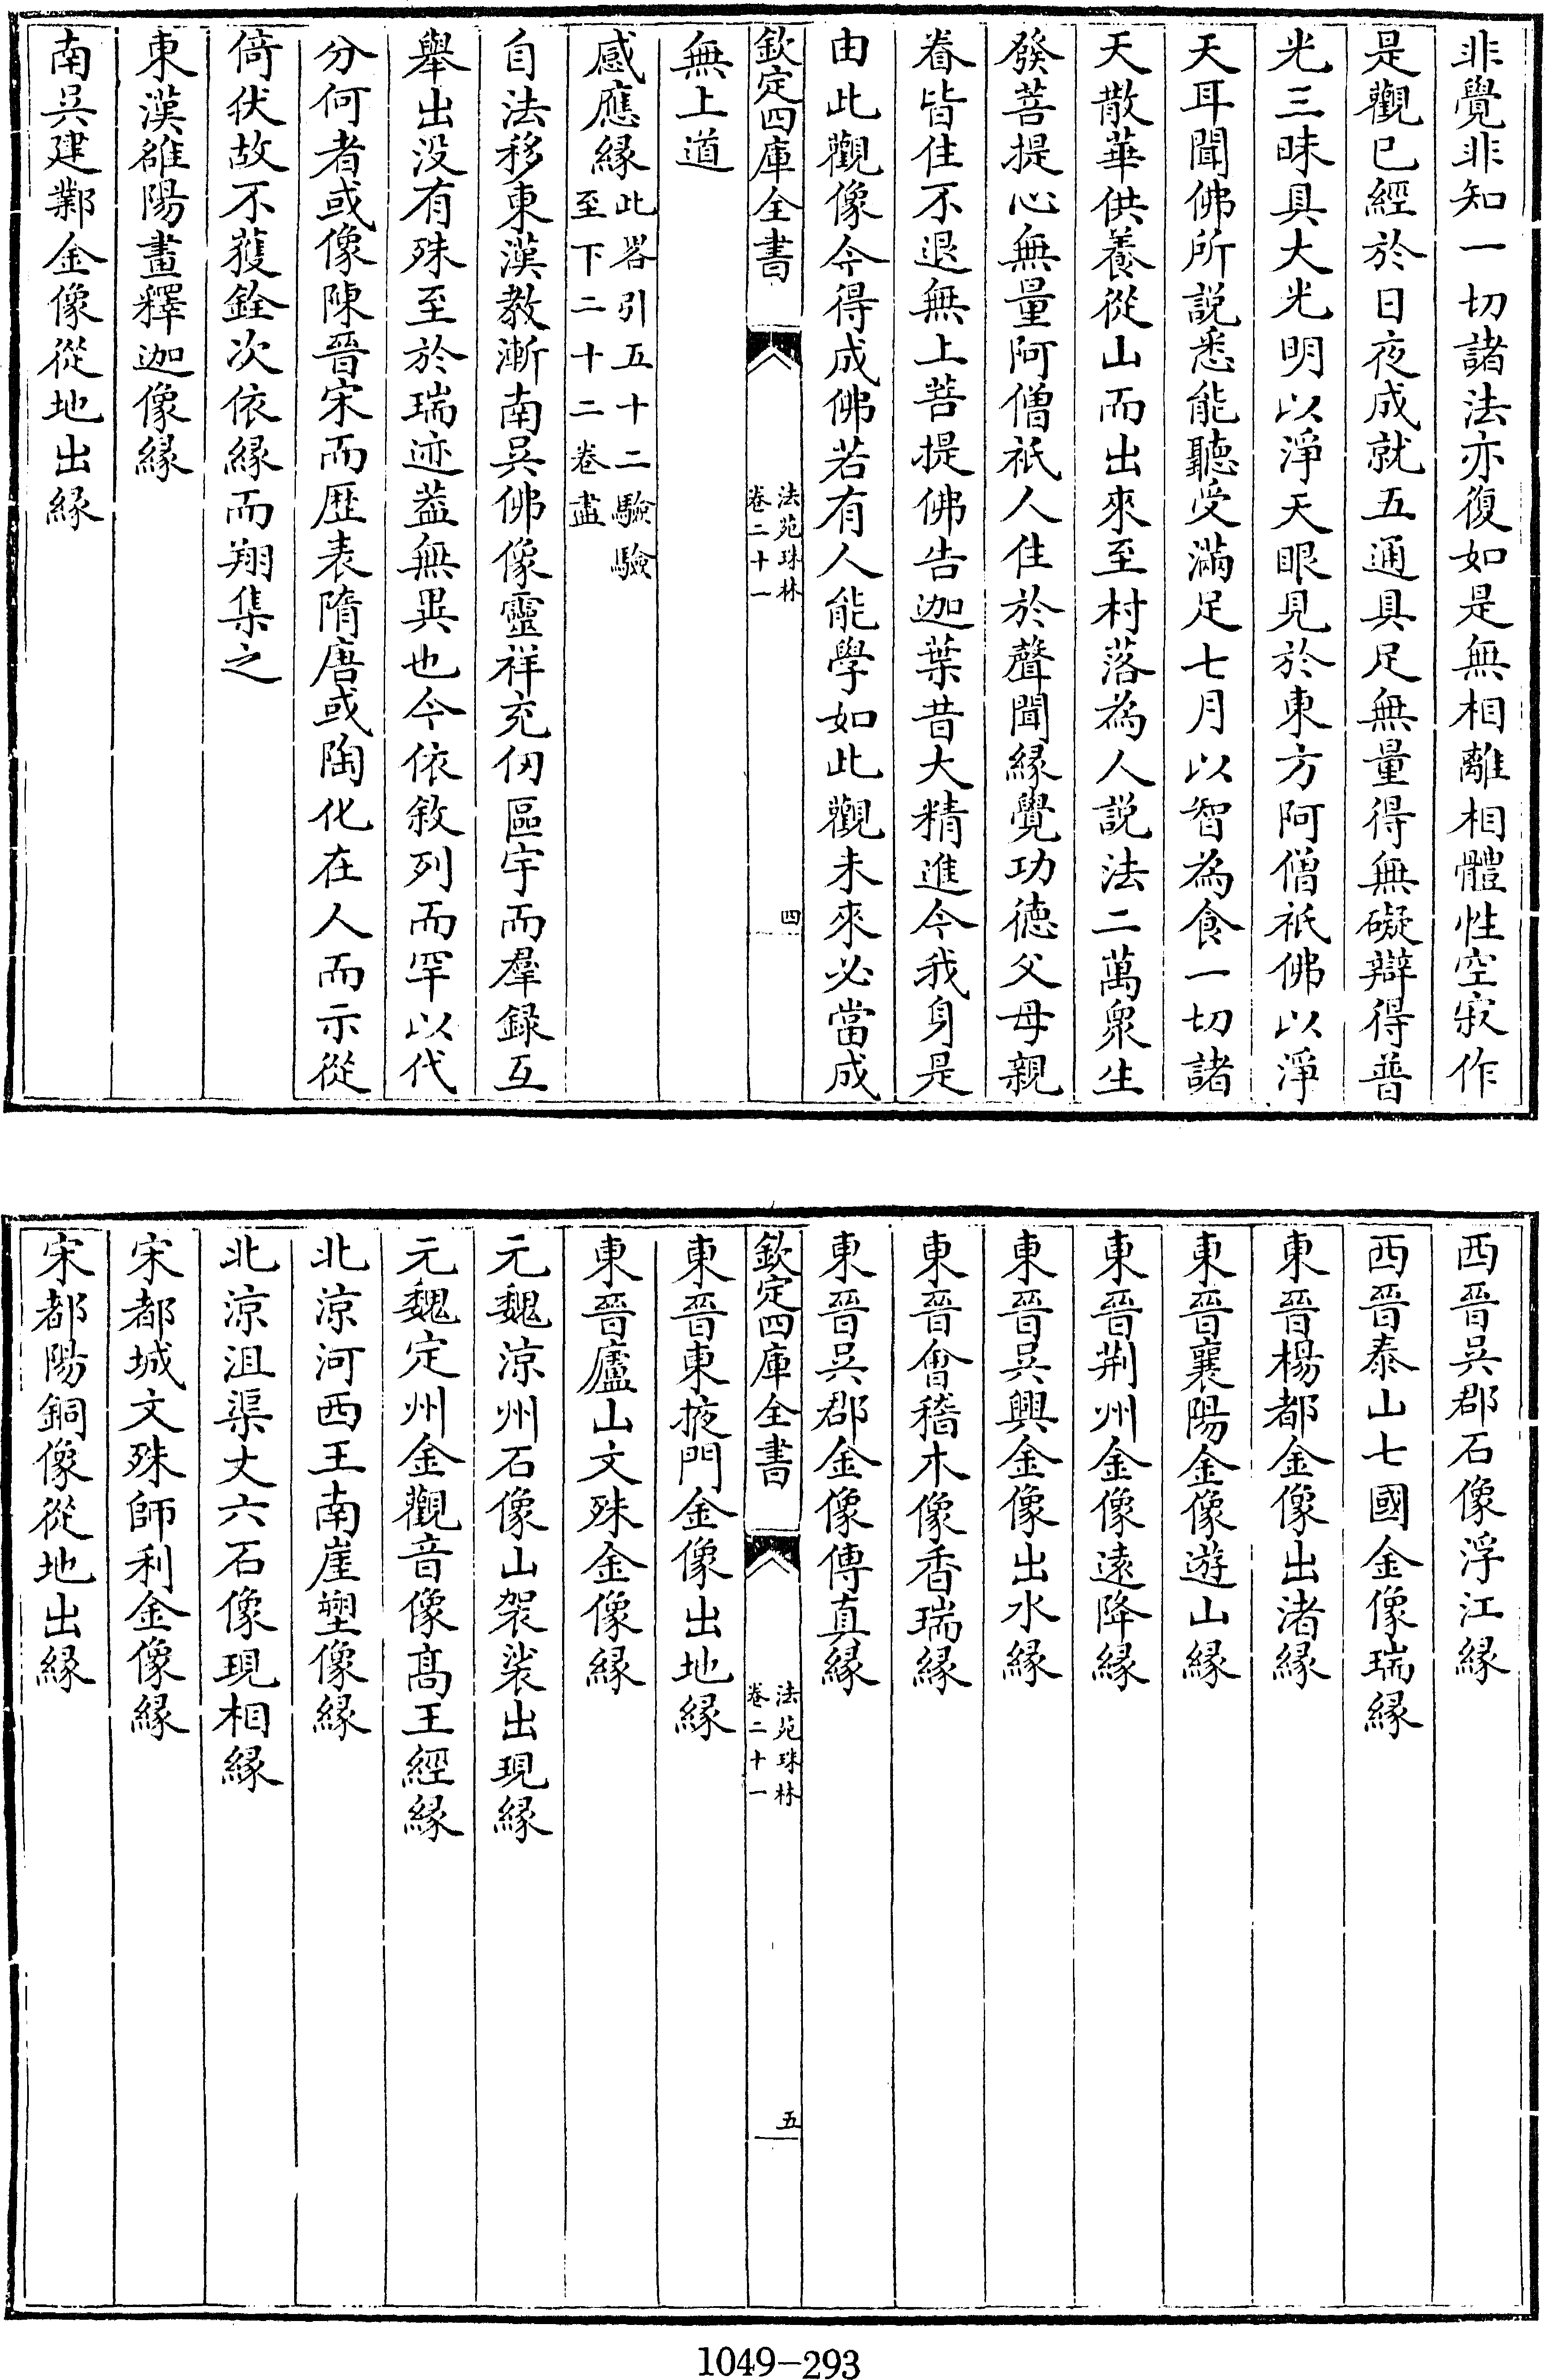 非覺非知一切諸法亦復如是無相離相體性空寂作
是觀已經於日夜成就五通具足無量得無礙辯得普
光三昧具大光明以淨天眼見於東方阿僧祇佛以淨
天耳聞佛所説悉能聽受滿足七月以智為食一切諸
天散華供養從山而出來至村落為人説法二萬衆生
發菩提心無量阿僧祇人住於聲聞緣覺功德父母親
眷皆住不退無上菩提佛告迦葉昔大精進今我身是
由此觀像今得成佛若有人能學如此觀未來必當成
欽定四庫全書
法苑珠林
卷二十一
四
無上道
感應緣此畧引五十二驗驗
至下二十二卷盡
自法移東漢教漸南呉佛像靈祥充仞區宇而羣録互
舉出没有殊至於瑞迹葢無異也今依敘列而罕以代
分何者或像陳晉宋而歴表隋唐或陶化在人而示從
倚伏故不獲銓次依緣而翔集之
東漢雒陽畫釋迦像緣
南呉建鄴金像從地出緣
西晉呉郡石像浮江緣
西晉泰山七國金像瑞緣
東晉楊都金像出渚緣
東晉襄陽金像遊山緣
東晉荆州金像遠降緣
東晉呉興金像出水緣
東晉會稽木像香瑞緣
東晉呉郡金像傳真緣
欽定四庫全書
法苑珠林
卷二十一
五
東晉東掖門金像出地緣
東晉廬山文殊金像緣
元魏涼州石像山袈裟出現緣
元魏定州金觀音像髙王經緣
北涼河西王南崖塑像緣
北涼沮渠丈六石像現相緣
宋都城文殊師利金像緣
宋都陽銅像從地出緣
1049-293